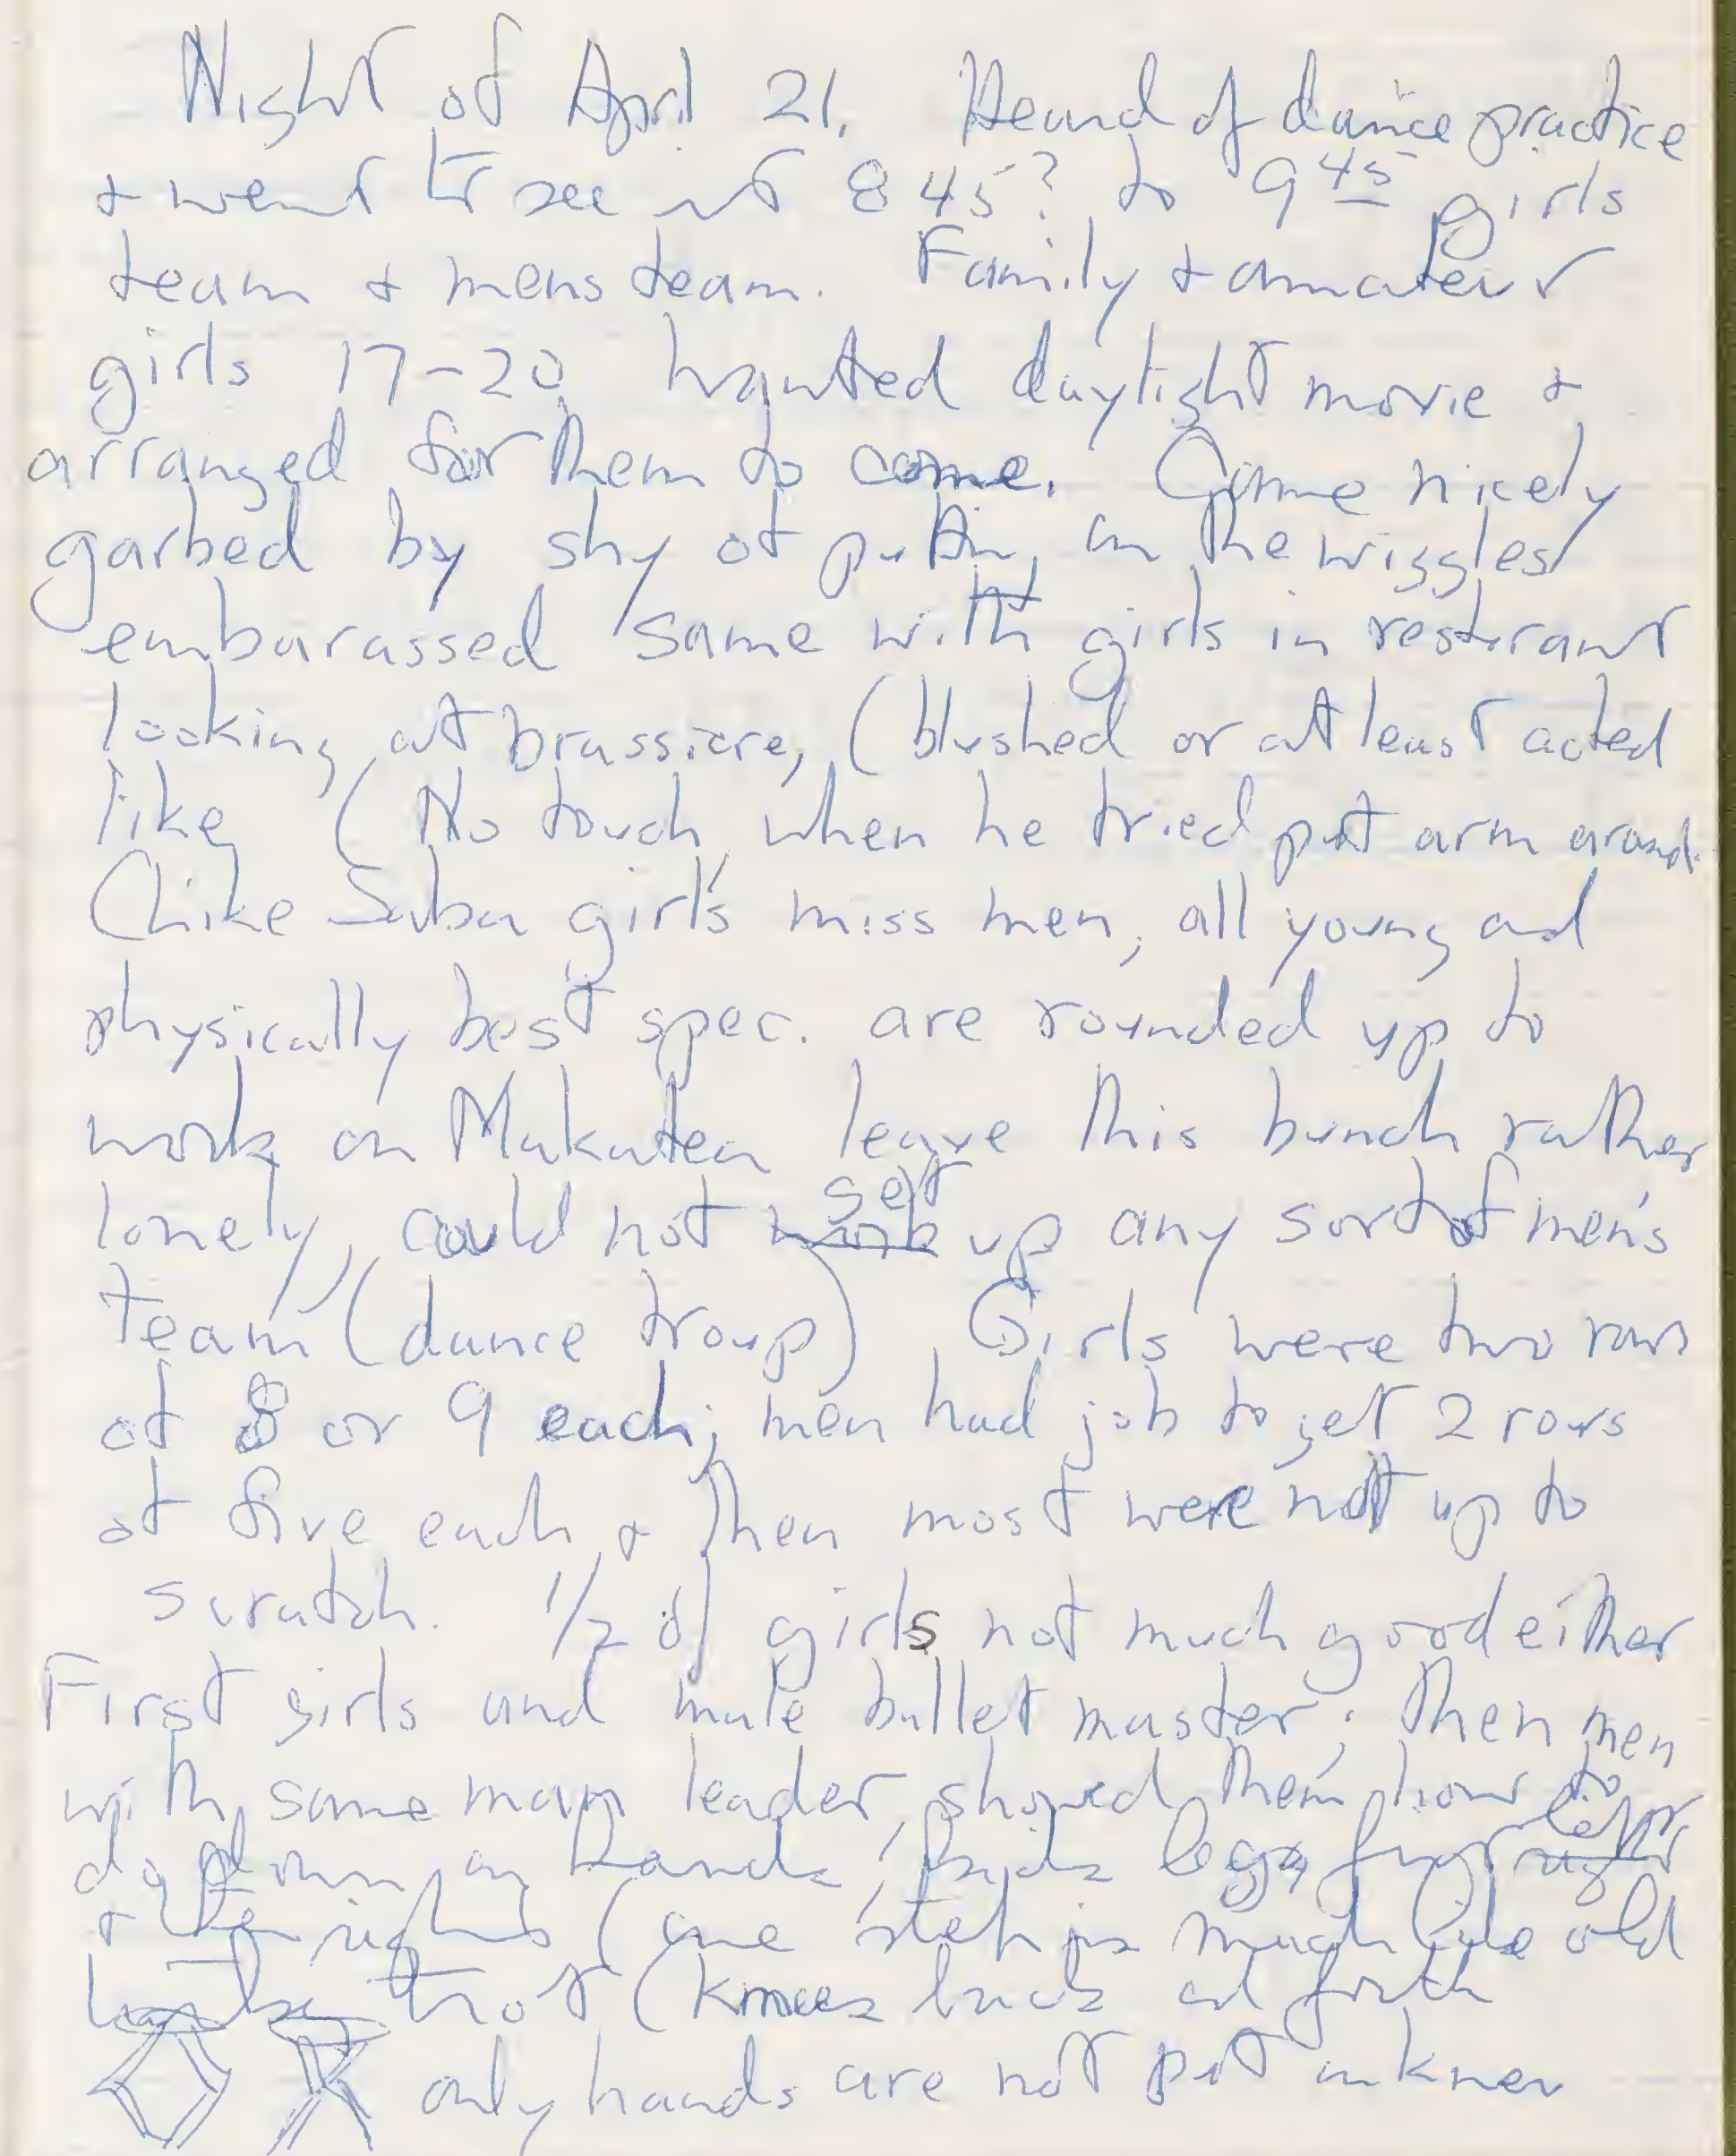 Night of April 21. Heard of dance practice
+ went to see at 8 45? to 9 45 girls
team + mens team. Family + amateur
girls 17-20 wanted daylight movie +
arranged for them to come. Came nicely
garbed by shy of puttin, on the wiggles
embarassed Same with girls in resturant
looking at brassiere, (blushed or at least acted
like (No touch, when he tried put arm around.
(Like Saba girls miss men, all young and
physically best spec. are rounded up to
work on Makatea leave this bunch rather
lonely), could not work set up any sort of men's
team (dance troup) Girls were two rows
of 8 or 9 each; men had job to get 2 rows
of five each + then most were not up to
scratch. 1/2 of girls not much good either
First girls and male ballet master. Then men
with same man leader, showed them how to
do down on hands, back legs left
+ then right (one step is much like old
trot (knees back and forth
only hands are not put on knee